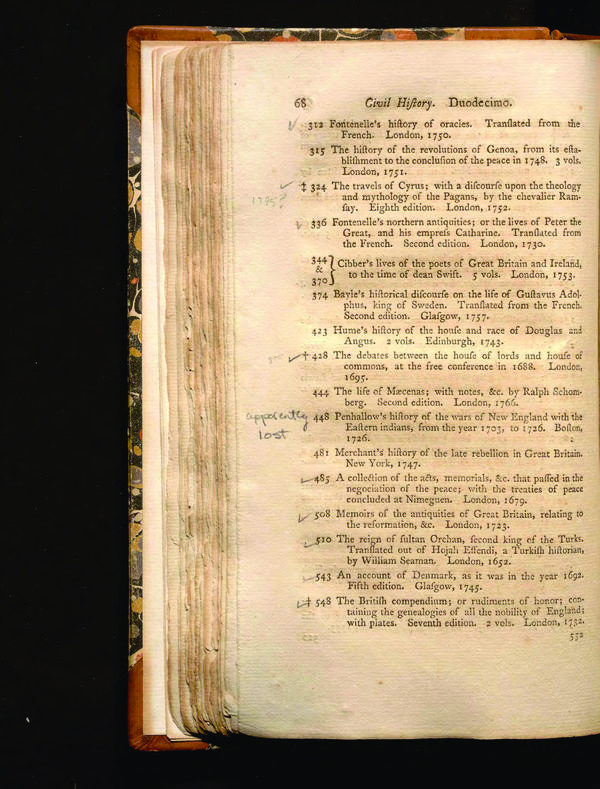 68 Civil Hiſtory. Duodecimo.
312 Fontenelle's hiſtory of oracles. Tranſlated from the
French. London, 1750.
315 The hiſtory of the revolutions of Genoa, from its eſta-
bliſhment to the concluſion of the peace in 1748. 3 vols.
London, 1751.
‡ 324 The travels of Cyrus; with a diſcourſe upon the theology
1795?
and mythology of the Pagans, by the chevalier Ram-
ſay. Eighth edition. London, 1752.
336 Fontenelle's northern antiquities; or the lives of Peter the
Great, and his empreſs Catharine. Tranſlated from
the French. Second edition. London, 1730.
344 & 370 } Cibber's lives of the poets of Great Britain and Ireland,
to the time of dean Swift. 5 vols. London, 1753.
374 Bayle's hiſtorical diſcourſe on the life of Guſtavus Adol-
phus, king of Sweden. Tranſlated from the French.
Second edition. Glaſgow, 1757.
423 Hume's hiſtory of the houſe and race of Douglas and
Angus. 2 vols. Edinburgh, 1743.
† 428 The debates between the houſe of lords and houſe of
commons, at the free conference in 1688. London,
1695.
444 The life of Mæcenas; with notes, &c. by Ralph Schom-
berg. Second edition. London, 1766.
apparently
lost
448 Penhallow's hiſtory of the wars of New England with the
Eaſtern indians, from the year 1703, to 1726. Boſton,
1726.
481 Merchant's hiſtory of the late rebellion in Great Britain.
New York, 1747.
485 A collection of the acts, memorials, &c. that paſſed in the
negociation of the peace; with the treaties of peace
concluded at Nimeguen. London, 1679.
508 Memoirs of the antiquities of Great Britain, relating to
the reformation, &c. London, 1723.
510 The reign of ſultan Orchan, ſecond king of the Turks.
Tranſlated out of Hojah Effendi, a Turkiſh hiſtorian,
by William Seaman. London, 1652.
543 An account of Denmark, as it was in the year 1692.
Fifth edition. Glaſgow, 1745.
‡ 548 The Britiſh compendium; or rudiments of honor; con-
taining the genealogies of all the nobility of England;
with plates. Seventh edition. 2 vols. London, 1732.
552